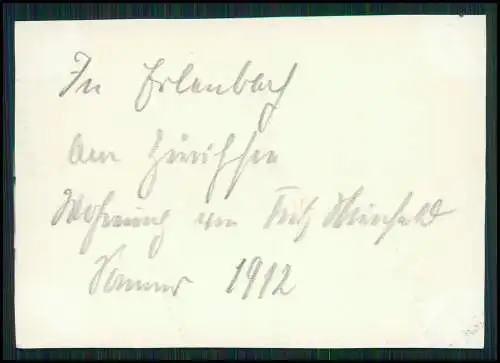 In Erlenbach
am Zürichsee
Wohnung von Fritz
Sommer 1912